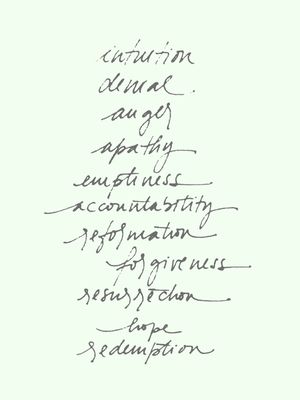 intuition
denial.
anger
apathy
emptiness
accountability
reformation
forgiveness
resurrection
hope
redemption